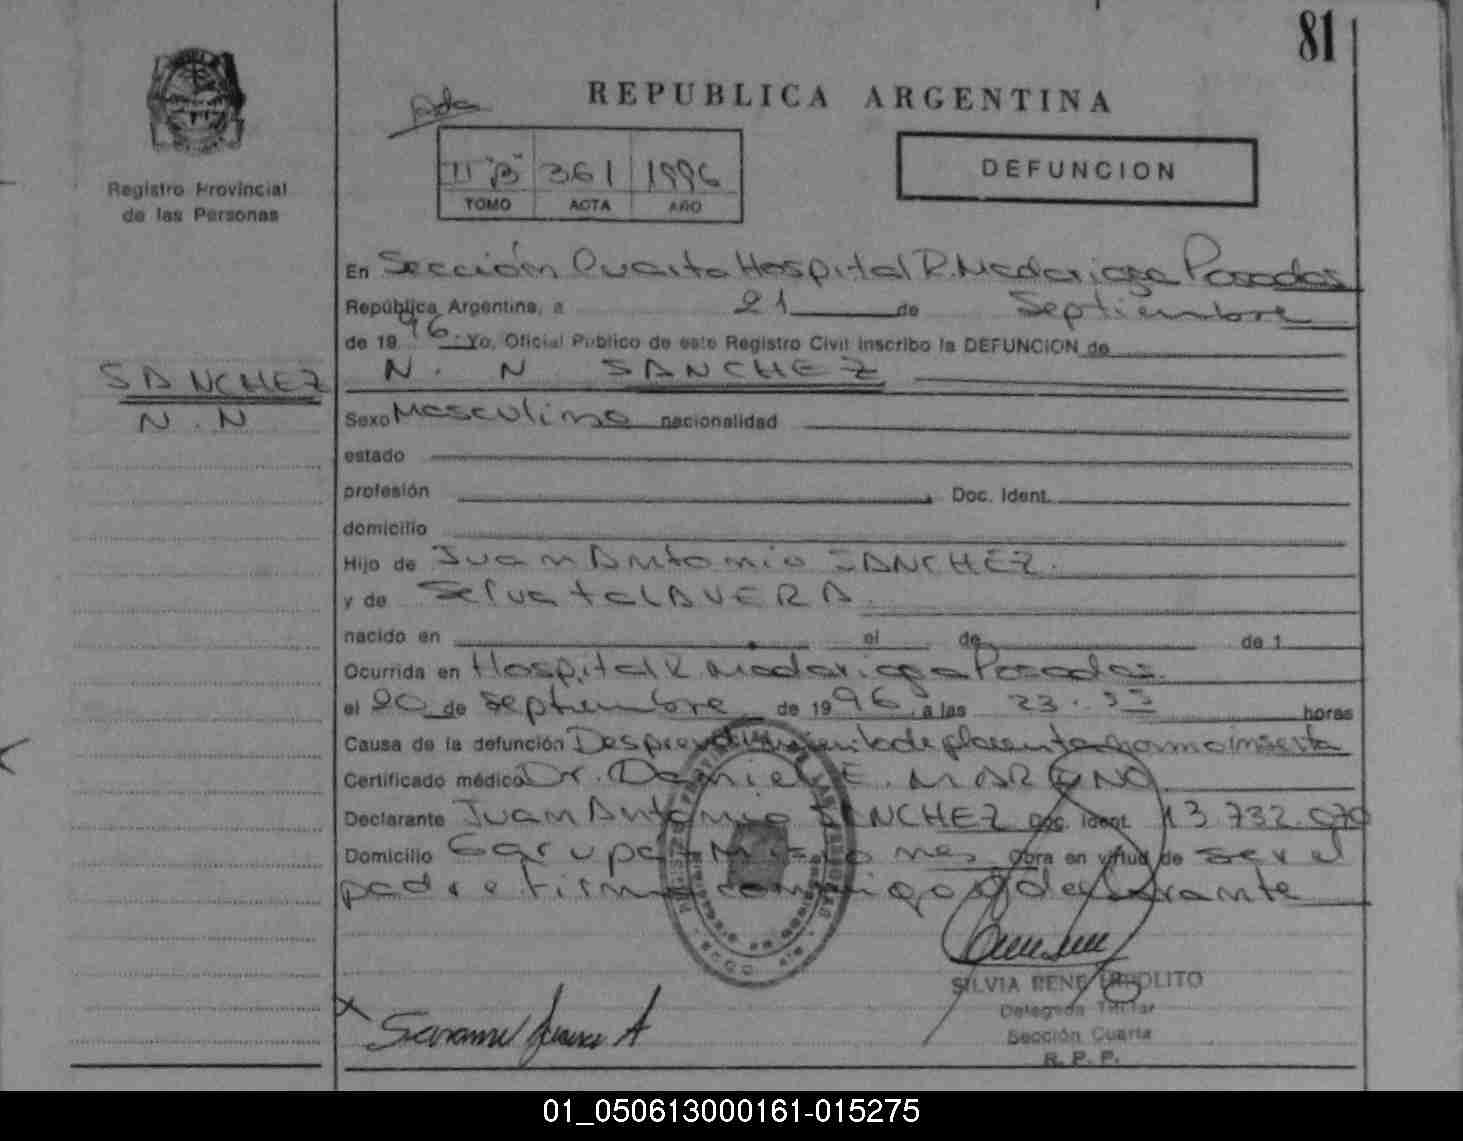 81
REPUBLICA ARGENTINA
Registro Provincial
de las Personas
II "B" 361 1996
TOMO ACTA AÑO
DEFUNCION
En Sección Cuarta Hospital R. Madariaga Posadas
República Argentina, a 21 de Septiembre
de 1996. Yo, Oficial Público de este Registro Civil inscribo la DEFUNCION de
N. N SANCHEZ
SANCHEZ
N. N
Sexo Masculino nacionalidad
estado
profesión Doc. Ident.
domicilio
Hijo de Juan Antonio SANCHEZ.
y de Selva talAVERA.
nacido en el de de 1
Ocurrida en Hospital R. Madariaga Posadas.
el 20 de septiembre de 1996 a las 23.55 horas
Causa de la defunción Desprendimiento de placenta normoinserta
Certificado médico Dr. Daniel E.
Declarante Juan Antonio SANCHEZ Doc. Ident. 13.732.070
Domicilio Garupa-Misiones obra en virtud de ser el
padre firma conmigo el declarante
SILVIA RENE HIPOLITO
Delegada Titular
Sección Cuarta
R. P. P.
01_050613000161-015275